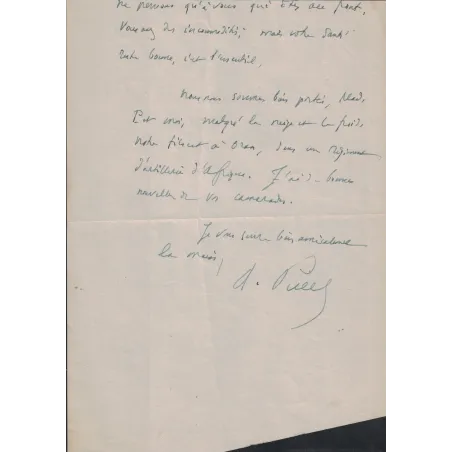 ne pensons qu'à vous qui êtes au front,
Vous avez des incommodités, mais votre santé
reste bonne, c'est l'essentiel,
Nous nous sommes bien portés, Mad.
Et moi, malgré la neige et le froid.
Notre fils est à Oran, dans un Régiment
d'artillerie d'Afrique. J'ai de bonnes
nouvelles de vos camarades.
Je vous serre bien amicalement
la main,
A.